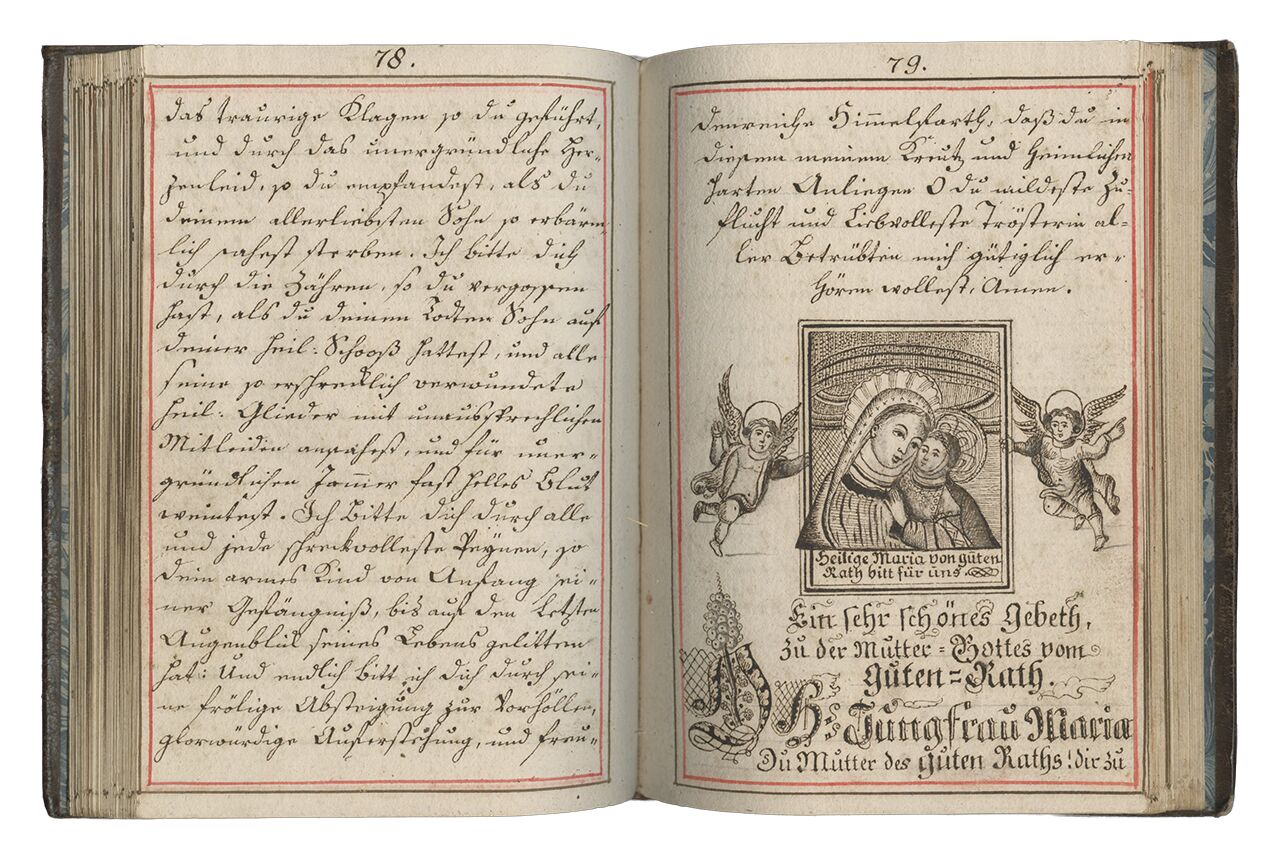 78.
das traurige Klagen so du geführt,
und durch das unergründliche Her-
zenleid, so du empfandest, als du
deinem allerliebsten Sohn so erbärm-
lich sahest sterben. Ich bitte dich
durch die Zähren, so du vergossen
hast, als du deinen Todten Sohn auf
deiner heil: Schooß hattest, und alle
seine so erschrecklich verwundete
heil: Glieder mit unaussprechlichen
Mitleiden ansahest, und für uner-
gründlichen Jam̅er fast helles Blut
weintest. Ich Bitte dich durch alle
und jede schreckvolleste Peynen, so
dein armes Kind von Anfang sei-
ner Gefängniß, bis auf den Letzten
Augenblick seines Lebens gelitten
hat: Und endlich bitt ich dich durch sei-
ne frölige Absteigung zur Vorhöllen,
glorwürdige Auferstehung, und freu-
79.
denreiche Him̅elfarth, daß du in
diesem meinem Kreutz und Heimlichen
harten Anliegen O du mildeste Zu-
flucht und Liebvolleste Trösterin al-
ler Betrübten mich gütiglich er-
hören wollest, Amen.
Heilige Maria von guten
Rath bitt für uns
Ein sehr schönes Gebeth,
zu der Mutter=Gottes vom
Guten=Rath.
Jungfrau Maria
Du Mutter des guten Raths! dir zu